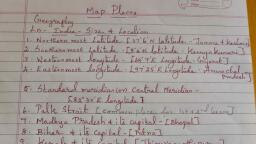 Map Places
Geography
Ln- India - Size & Location
1. Northernmost latitude [37°6' N latitude - Jammu & Kashmir]
2. Southernmost latitude - [8°4' N latitude - Kanyakumari]
3. Westernmost longitude [68°7'E longitude Gujarat]
4. Easternmost longitude [97°25'E longitude - Arunachal
Pradesh]
5. Standard meridian on Central Meridian -
[82°30'E longitude]
6. Palk Strait [common place for 1st & 2nd
7. Madhya Pradesh & its capital - [Bhopal]
8. Bihar & its capital - [Patna]
9. Kerala & its capital